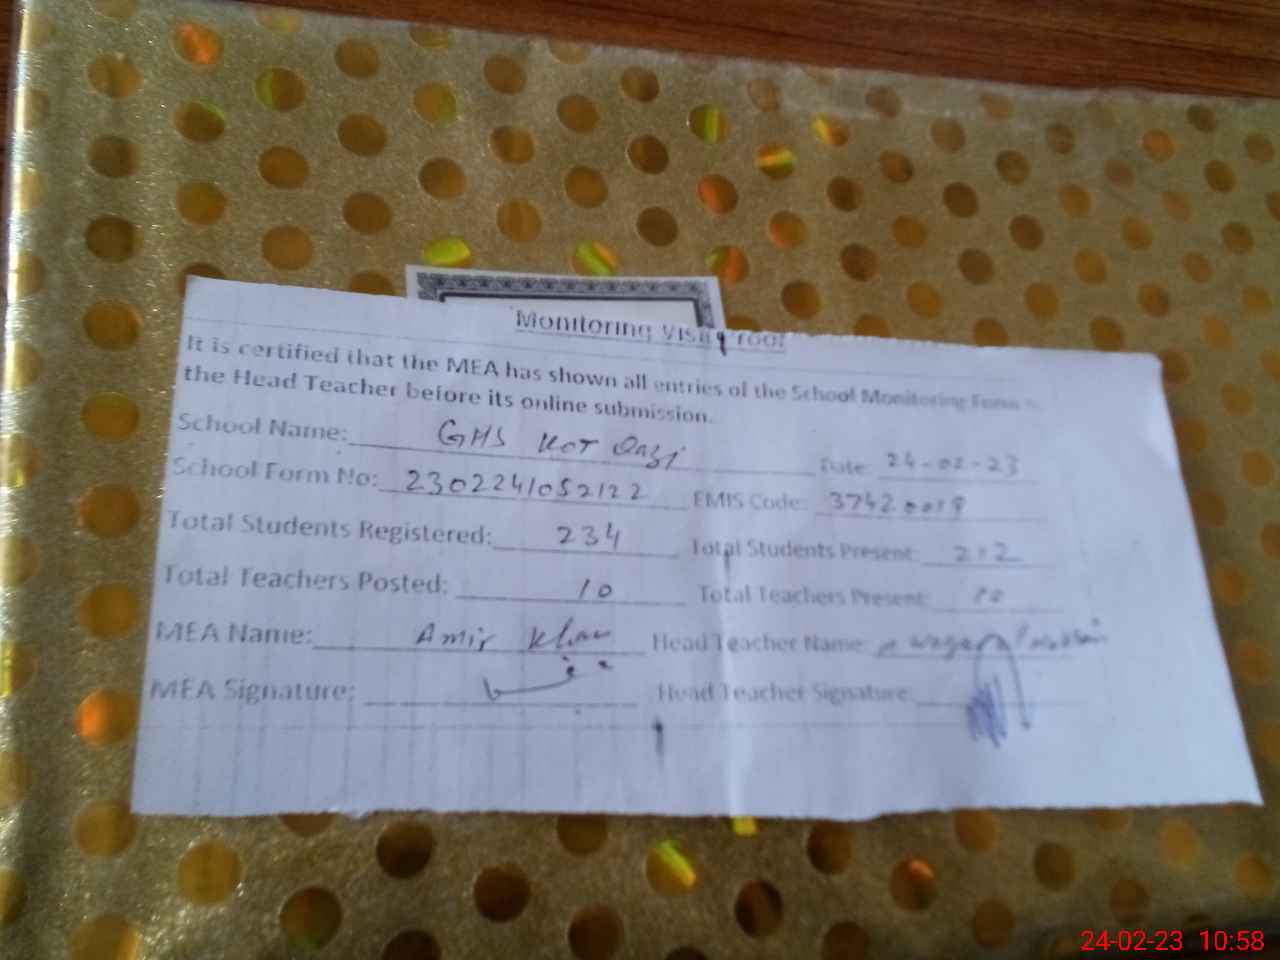 Monitoring Visit Tool
It is certified that the MEA has shown all entries of the School Monitoring Form
the Head Teacher before its online submission.
School Name: GHS Kot Qazi Date: 24-02-23
School Form No: 2302241052122 EMIS Code: 37420019
Total Students Registered: 234 Total Students Present: 212
Total Teachers Posted: 10 Total Teachers Present: 10
MEA Name: Amir Khan Head Teacher Name:
MEA Signature: Head Teacher Signature:
24-02-23 10:58